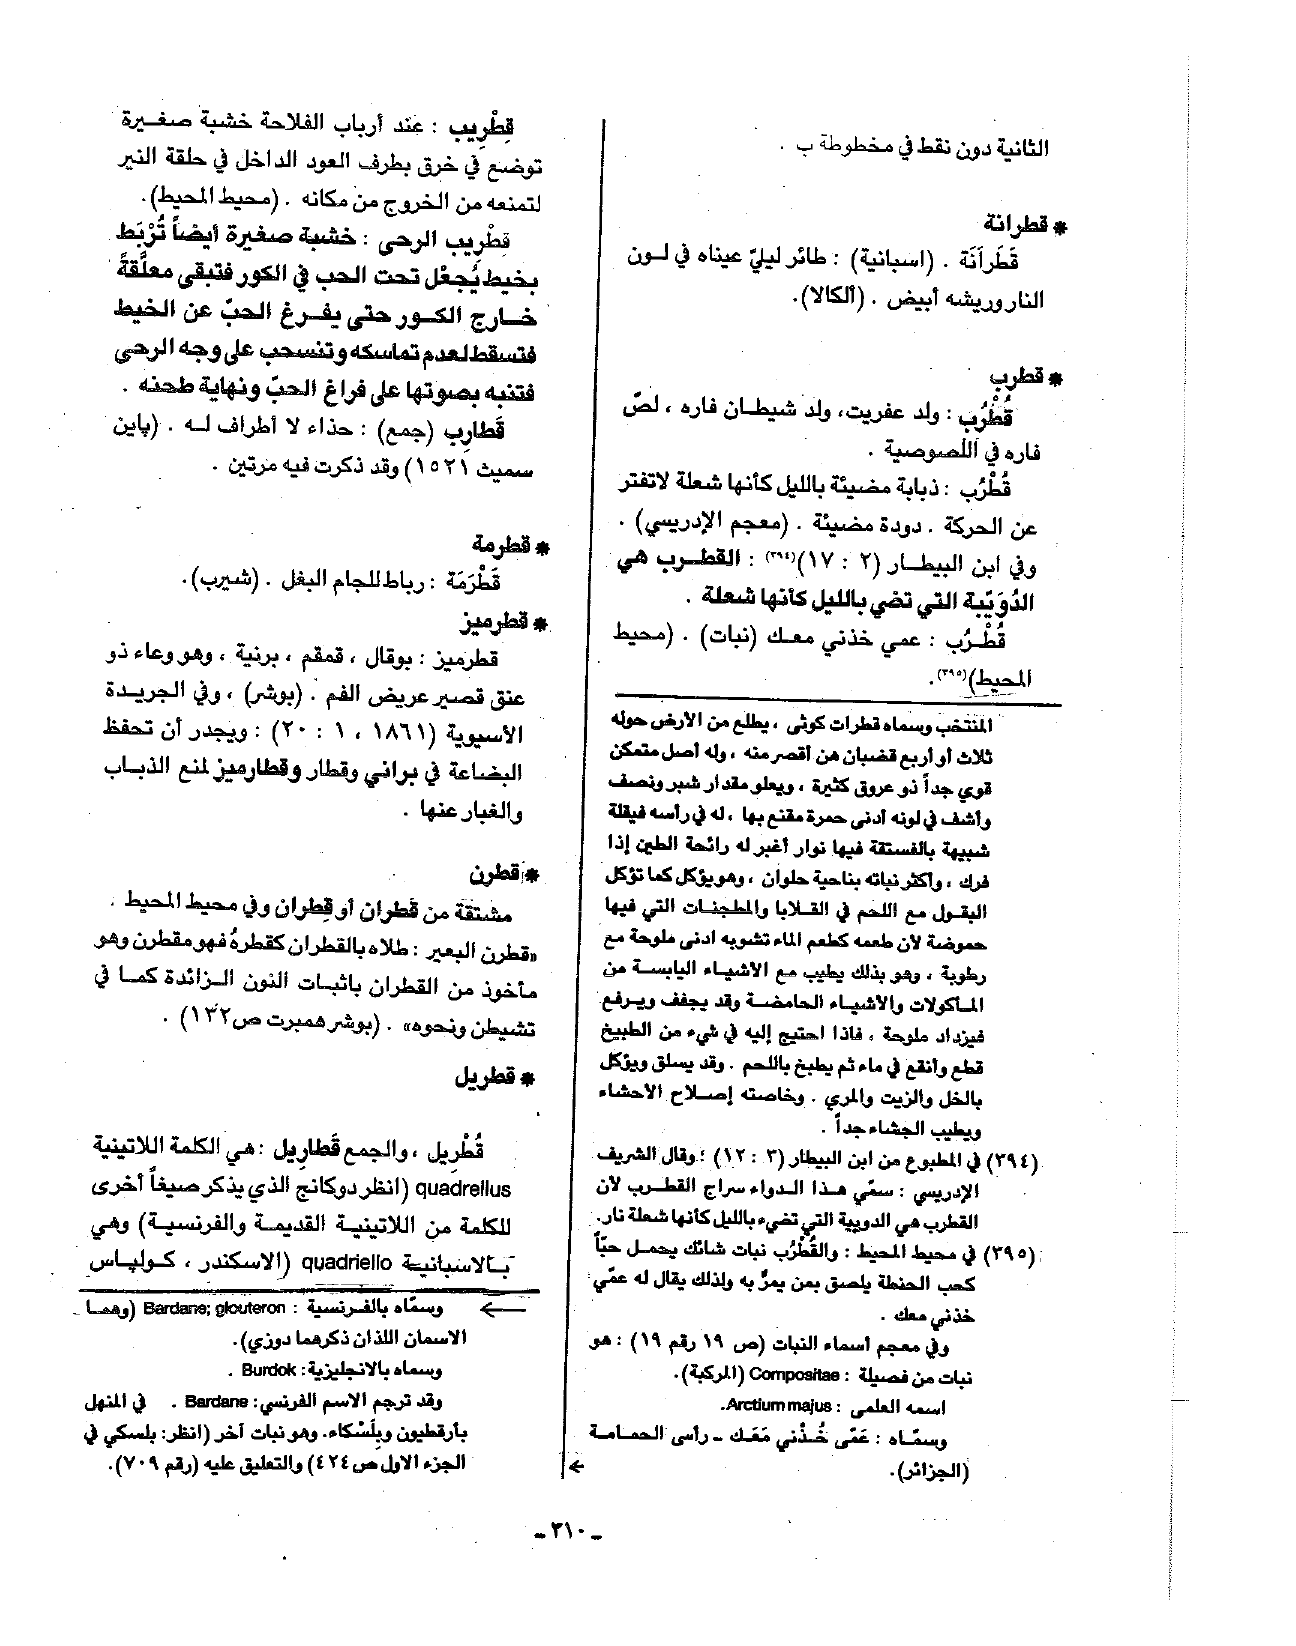 الثانية دون نقط في مخطوطة ب .
* قطرانة
قَطَرَانَة . (اسبانية) : طائر ليليّ عيناه في لون
النار وريشه أبيض . (ألكالا).
* قطرب
قُطْرُب : ولد عفريت، ولد شيطان فاره ، لصّ
فاره في اللصوصية .
قُطْرُب : ذبابة مضيئة بالليل كأنها شعلة لاتفتر
عن الحركة . دودة مضيئة . (معجم الإدريسي) .
وفي ابن البيطار (٢ : ١٧)(٣٩٤) : القطرب هي
الدُوَيّبة التي تضي بالليل كأنها شعلة .
قُطْرُب : عمي خذني معك (نبات) . (محيط
المحيط)(٣٩٥).
المنتخب وسماه قطرات كوثى ، يطلع من الأرض حوله
ثلاث أو أربع قضبان هن أقصر منه ، وله أصل متمكن
قوي جداً ذو عروق كثيرة ، ويعلو مقدار شبر ونصف
وأشف في لونه أدنى حمرة مقنع بها ، له في رأسه فيقلة
شبيهة بالفستقة فيها نوار أغبر له رائحة الطين إذا
فرك ، وأكثر نباته بناحية حلوان ، وهو يؤكل كما تؤكل
البقول مع اللحم في القلايا والمطجنات التي فيها
حموضة لأن طعمه كطعم الماء تشوبه ادنى ملوحة مع
رطوبة ، وهو بذلك يطيب مع الأشياء اليابسة من
المأكولات والأشياء الحامضة وقد يجفف ويرفع
فيزداد ملوحة ، فاذا احتيج إليه في شيء من الطبيخ
قطع وأنقع في ماء ثم يطبخ باللحم . وقد يسلق ويؤكل
بالخل والزيت والمري . وخاصته إصلاح الأحشاء
ويطيب الجشاء جداً .
(٣٩٤) في المطبوع من ابن البيطار (٣ : ١٢) : وقال الشريف
الإدريسي : سمّي هذا الدواء سراج القطرب لأن
القطرب هي الدويبة التي تضيء بالليل كأنها شعلة نار.
(٣٩٥) في محيط المحيط : والقُطْرُب نبات شائك يحمل حبّاً
كحب الحنطة يلصق بمن يمرّ به ولذلك يقال له عمّي
خذني معك .
وفي معجم أسماء النبات (ص ١٩ رقم ١٩) : هو
نبات من فصيلة : Compositae (المركبة).
اسمه العلمى : Arctium majus.
وسمّاه : عَمّى خُذْني مَعَك ــ رأس الحمامة
(الجزائر).
←
قِطْرِيب : عند أرباب الفلاحة خشبة صغيرة
توضع في خرق بطرف العود الداخل في حلقة النير
لتمنعه من الخروج من مكانه . (محيط المحيط).
قِطْرِيب الرحى : خشبة صغيرة أيضاً تُرْبَط
بخيط يُجعْل تحت الحب في الكور فتبقى معلّقةً
خارج الكور حتى يفرغ الحبّ عن الخيط
فتسقط لعدم تماسكه وتنسحب على وجه الرحى
فتنبه بصوتها على فراغ الحبّ ونهاية طحنه .
قَطارِب (جمع) : حذاء لا أطراف له . (پاين
سميث ١٥٢١) وقد ذكرت فيه مرتين .
* قطرمة
قَطْرَمَة : رباط للجام البغل . (شيرب).
* قطرميز
قطرميز : بوقال ، قمقم ، برنية ، وهو وعاء ذو
عنق قصير عريض الفم . (بوشر) ، وفي الجريدة
الأسيوية (١٨٦١ ، ١ : ٢٠) : ويجدر أن تحفظ
البضاعة في براني وقطار وقطارميز لمنع الذباب
والغبار عنها .
* قطرن
مشتقة من قَطران أو قِطران وفي محيط المحيط .
«قطرن البعير : طلاه بالقطران كقطرهُ فهو مقطرن وهو
مأخوذ من القطران باثبات النون الزائدة كما في
تشيطن ونحوه» . (بوشر همبرت ص١٣٢) .
* قطريل
قُطْرِيل ، والجمع قَطاريل : هي الكلمة اللاتينية
quadrellus (انظر دوكانج الذي يذكر صيغاً أخرى
للكلمة من اللاتينية القديمة والفرنسية) وهي
بالاسبانية quadriello (الاسكندر ، كولياس
← وسمّاه بالفرنسية : Bardane; glouteron (وهما
الاسمان اللذان ذكرهما دوزي).
وسماه بالانجليزية : Burdok .
وقد ترجم الاسم الفرنسي : Bardane . في المنهل
بأرقطيون وبِلَسْكاء. وهو نبات آخر (انظر: بلسكي في
الجزء الاول ص ٤٢٤) والتعليق عليه (رقم ٧٠٩).
ـ ٣١٠ ـ